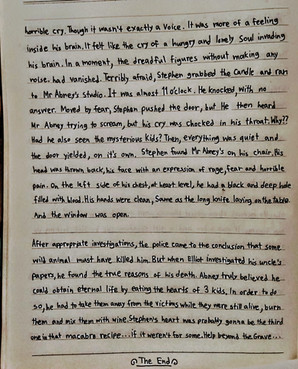 horrible cry. Though it wasn't exactly a voice. It was more of a feeling
inside his brain. It felt like the cry of a hungry and lonely Soul invading
his brain. In a moment, the dreadful figures without making any
noise. had vanished. Terribly afraid, Stephen grabbed the Candle and ran
to Mr Abney's studio. It was almost 11 o'clock. He knocked, with no
answer. Moved by fear, Stephan pushed the door, but He then heard
Mr Abney trying to scream, but his cry was chocked in his throat. Why??
Had he also seen the mysterious kids? Then, everything was quiet and
the door yielded, on it's own. Stephen found Mr Abney's on his chair, His
head was thrown back, his face with an expression of rage, fear and horrible
pain. On the left side of his chest, at heart level, he had a black and deep hole
filled with blood. His hands were clean, same as the long knife laying on the table.
And the window was open.
After appropriate investigations, the police came to the conclusion that some
wild animal must have killed him. But when Elliot investigated his uncle's
papers, he found the true reasons of his death. Abney truly believed he
could obtain eternal life by eating the hearts of 3 kids. In order to do
so, he had to take them away from the victims while they were still alive, burn
them and mix them with wine. Stephen's heart was probably gonna be the third
one in that macabro recipe... if it weren't for some. Help beyond the Grave...
The End